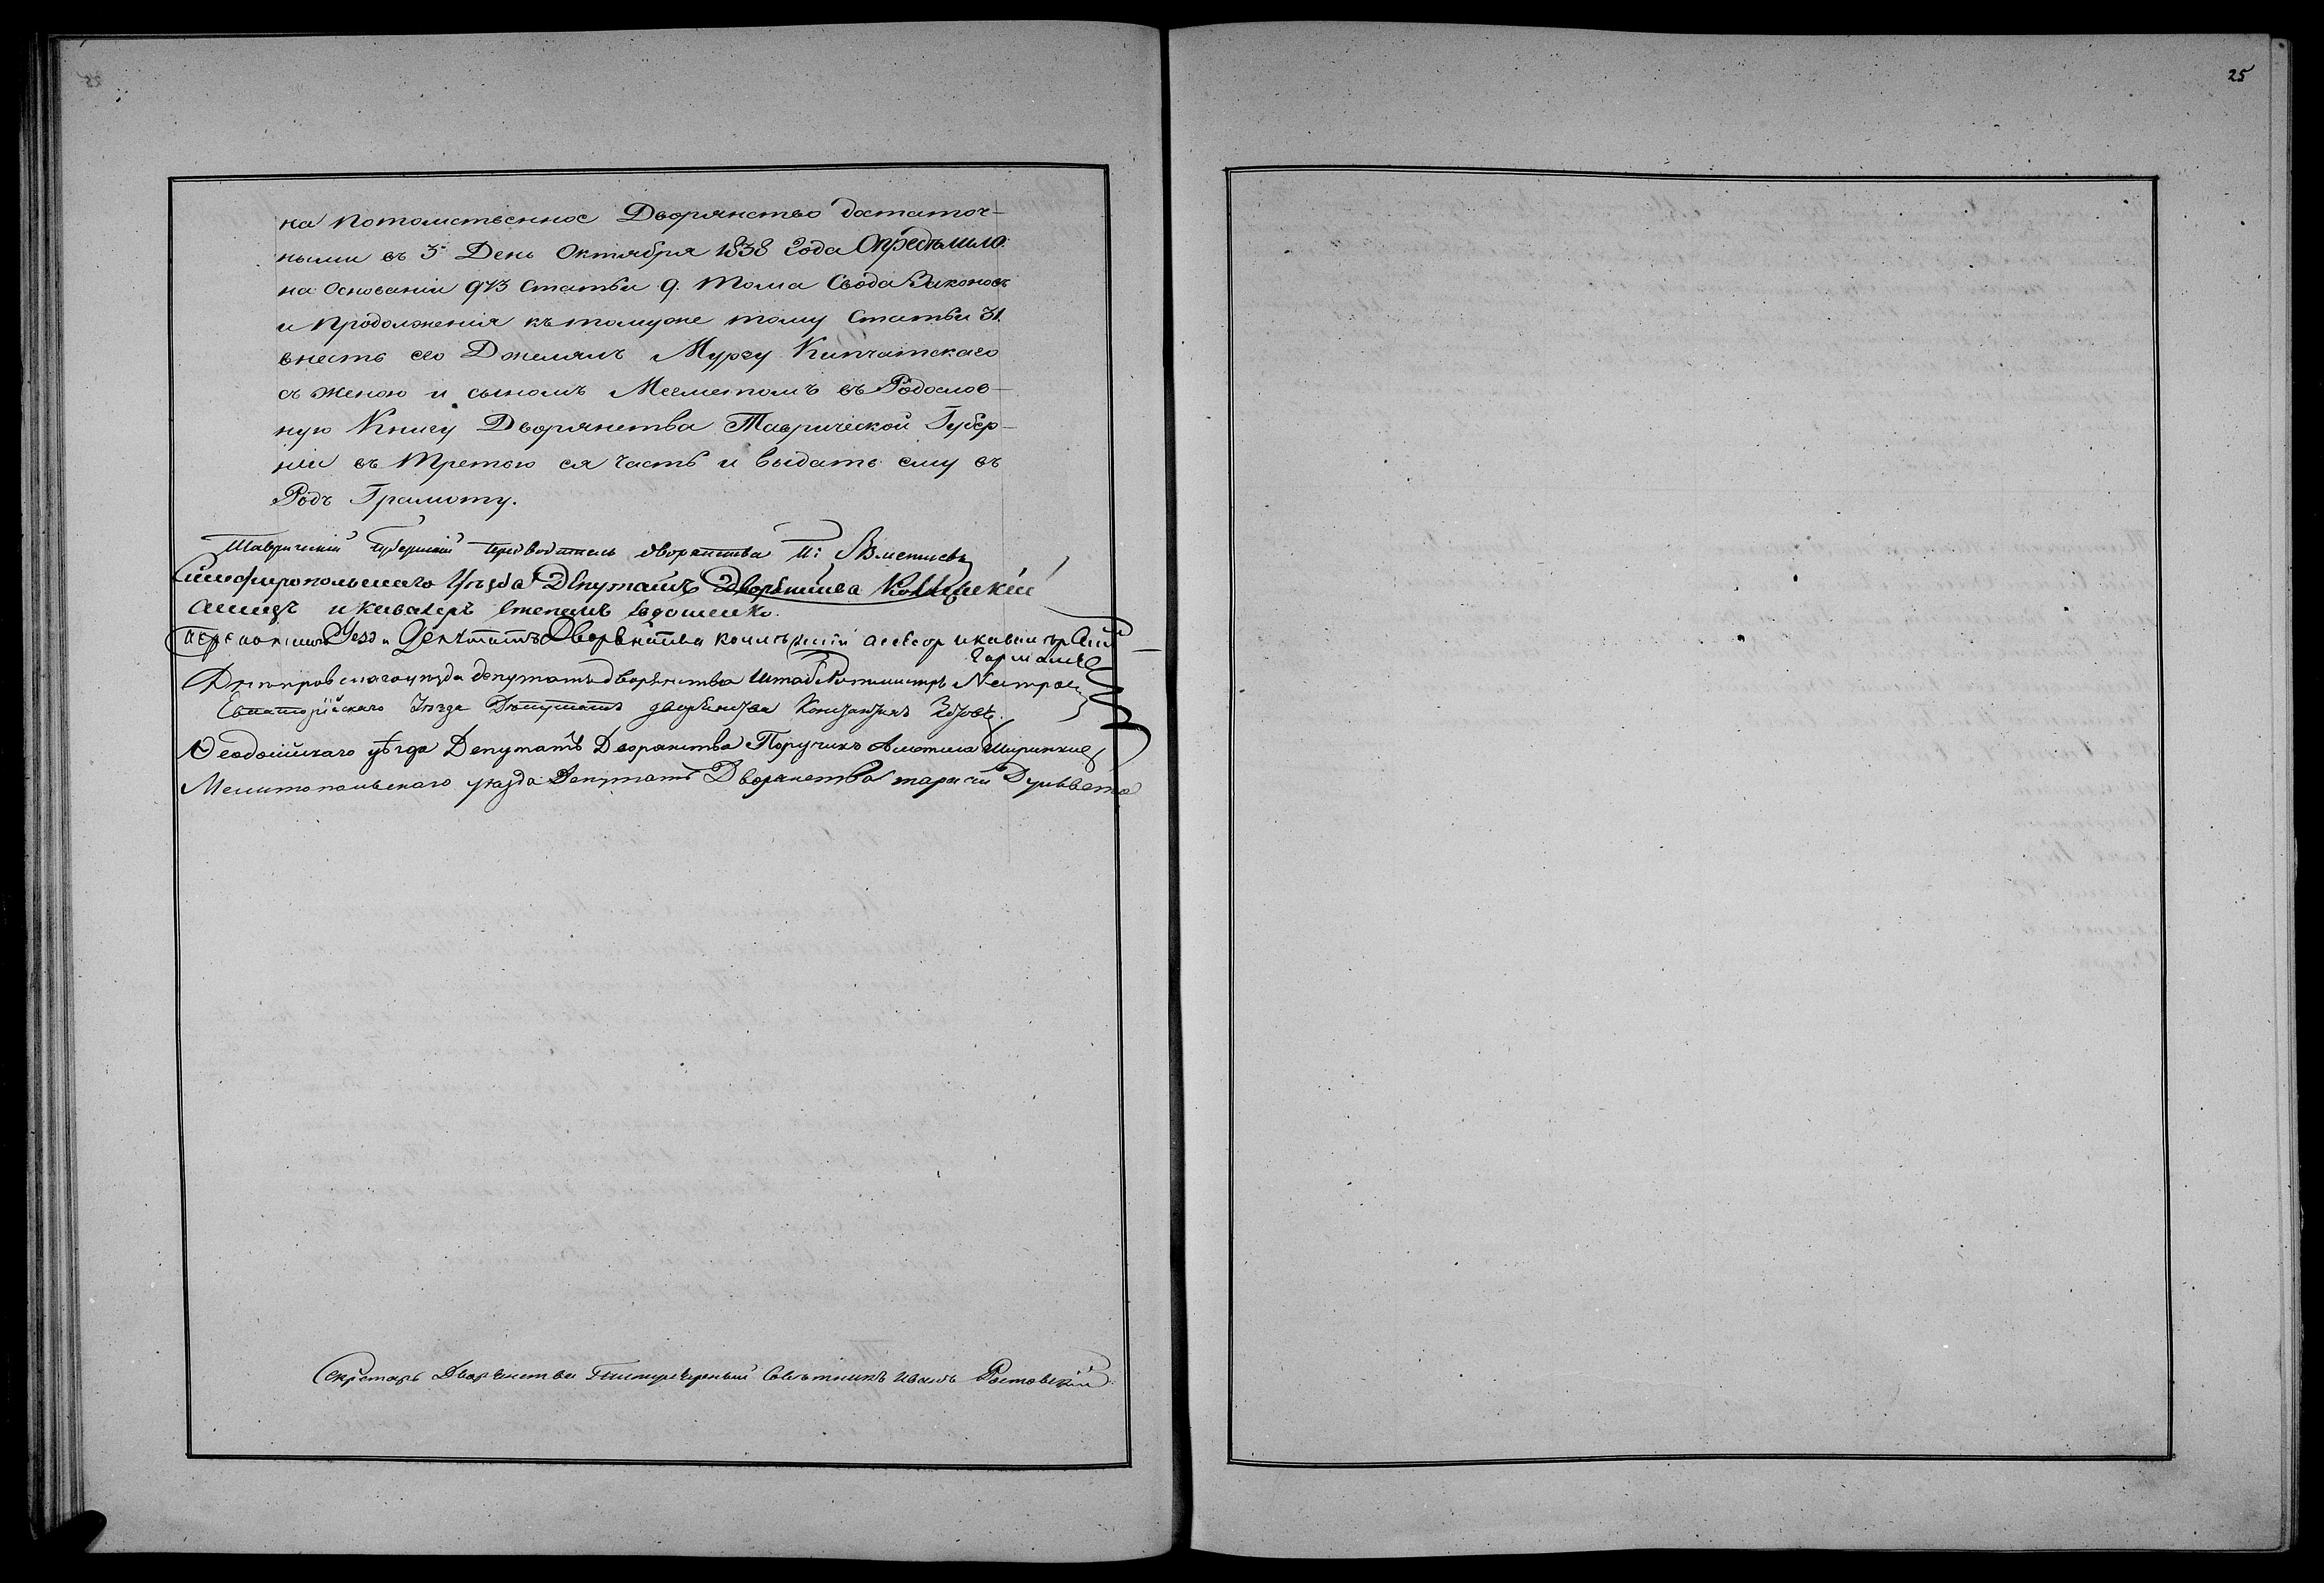 25
на потомственное Дворянство достаточ-
ными въ 3й День Октября 1838 Года Опредѣлило:
на Основаніи 973 Статьи 9. Тома Свода Законовъ
и Продолженія къ томуже тому Статьи 31.
внесть его Джелялъ Мурзу Кипчатскаго
съ женою и сыномъ Меметомъ въ Родослов-
ную Книгу Дворянства Таврической Губер-
ніи въ Третью ея Часть и выдать ему въ
Родъ Грамоту.
Таврическій Губернскій предводитель дворянства
Симферопольскаго Уѣзда Депутатъ Дворянства Коллежскій
и Кавалеръ Степанъ
Депутатъ Дворянства асесор и кавалеръ
Днепровскаго уезда депутатъ дворянства Штабъ Ротмистръ
Евпаторійскаго Уезда Депутатъ дворянства
Ѳеодосійскаго уѣзда Депутатъ Дворянства Поручикъ Ширинскій
Мелитопольскаго уезда Депутатъ Дворянства
Секретарь Дворянства Титулярный Совѣтникъ Иванъ Ростовскій